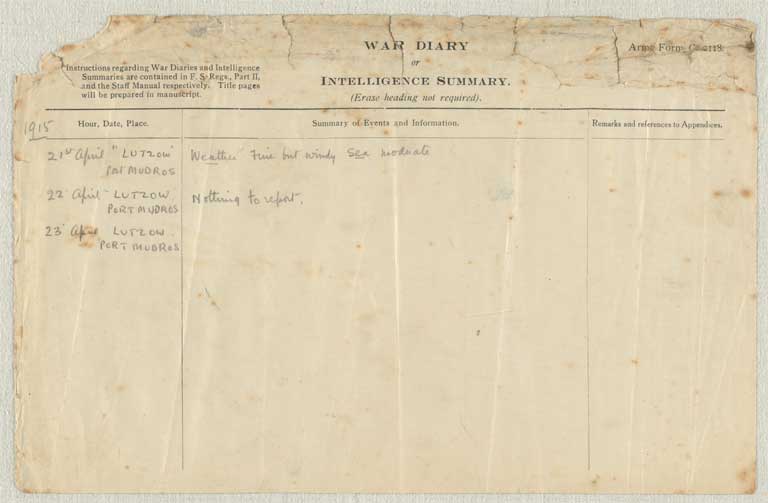 WAR DIARY
or
INTELLIGENCE SUMMARY.
(Erase heading not required).
Army Form C. 2118.
Instructions regarding War Diaries and Intelligence
Summaries are contained in F. S. Regs., Part II,
and the Staff Manual respectively. Title pages
will be prepared in manuscript.
1915
Hour, Date, Place.
Summary of Events and Information.
Remarks and references to Appendices.
21st April "LUTZOW" Weather Fine but windy Sea moderate
Port MUDROS
22 April LUTZOW Nothing to report.
PORT MUDROS
23 April LUTZOW.
PORT MUDROS